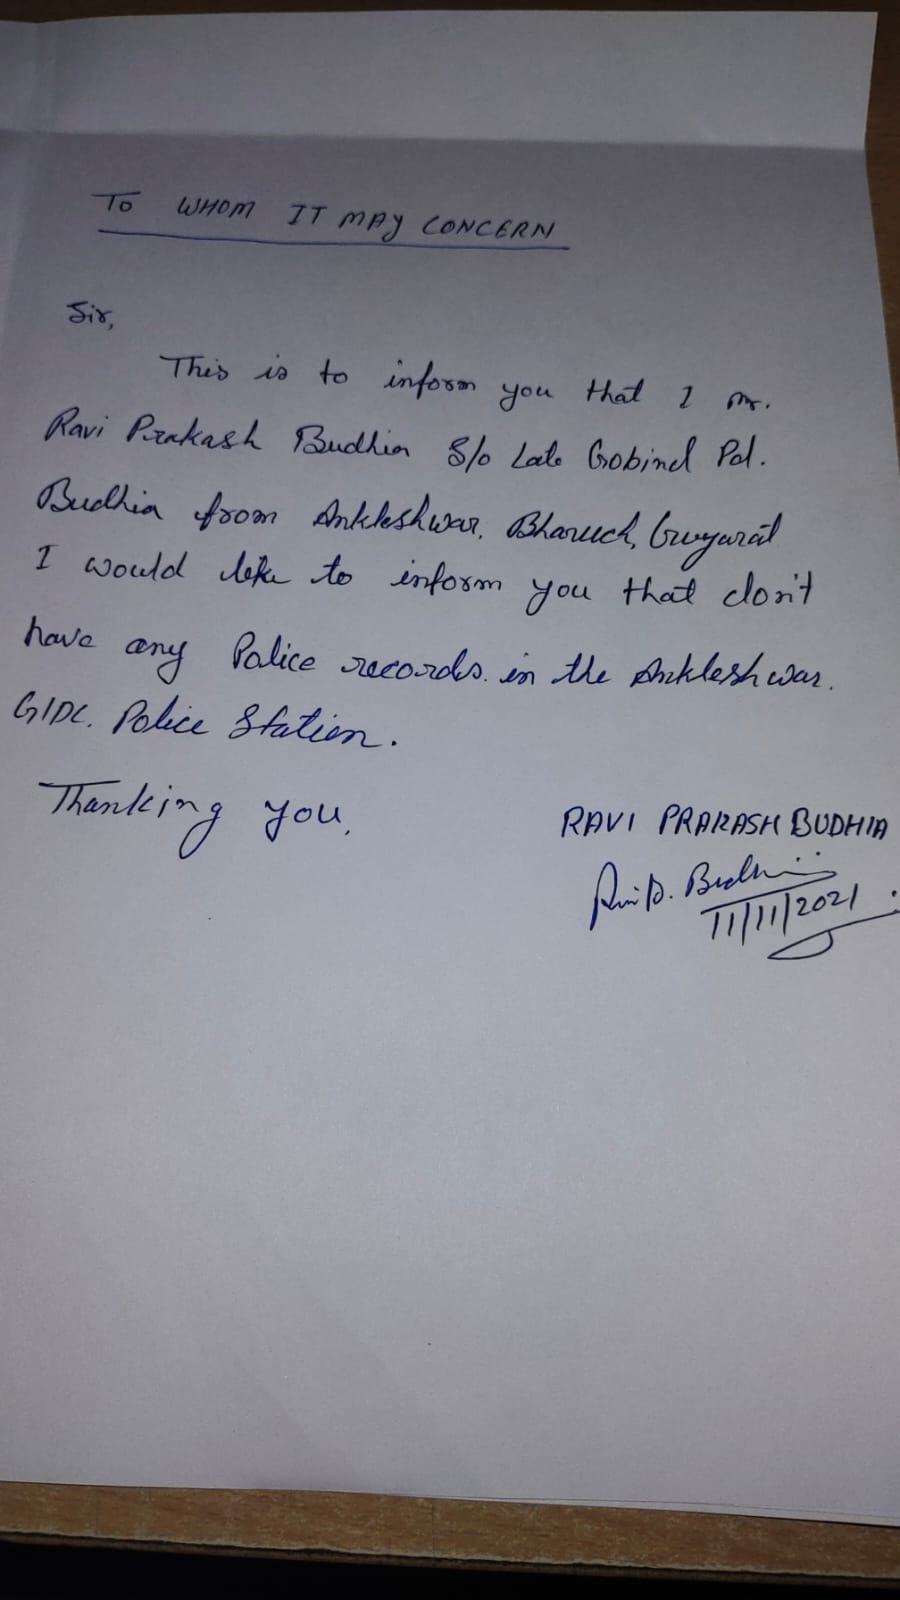 TO WHOM IT MAY CONCERN
Sir,
This is to inform you that I Mr.
Ravi Prakash Budhia S/o Late Gobind Pd.
Budhia from Ankleshwar, Bharuch, Gujarat
I would like to inform you that don't
have any Police records. in the Ankleshwar.
GIDC. Police Station.
Thanking you,
RAVI PRAKASH BUDHIA
11/11/2021